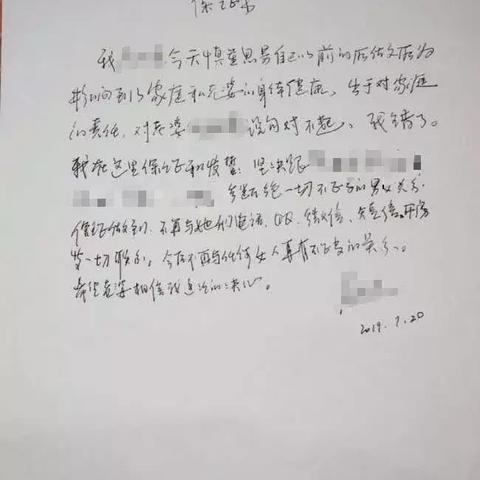 保证书
我 今天慎重思考自己以前的所做所为
影响到了家庭和老婆的身体健康,出于对家庭
的责任,对老婆 说句对不起,我错了。
我在这里保证和发誓:坚决跟
断绝一切不正当的男女关系
保证做到,不再与她们电话、QQ、微信、短信、开房
等一切联系,今后不再与任何女人再有不正当的关系。
希望老婆相信我这次的决心。
2019.7.20